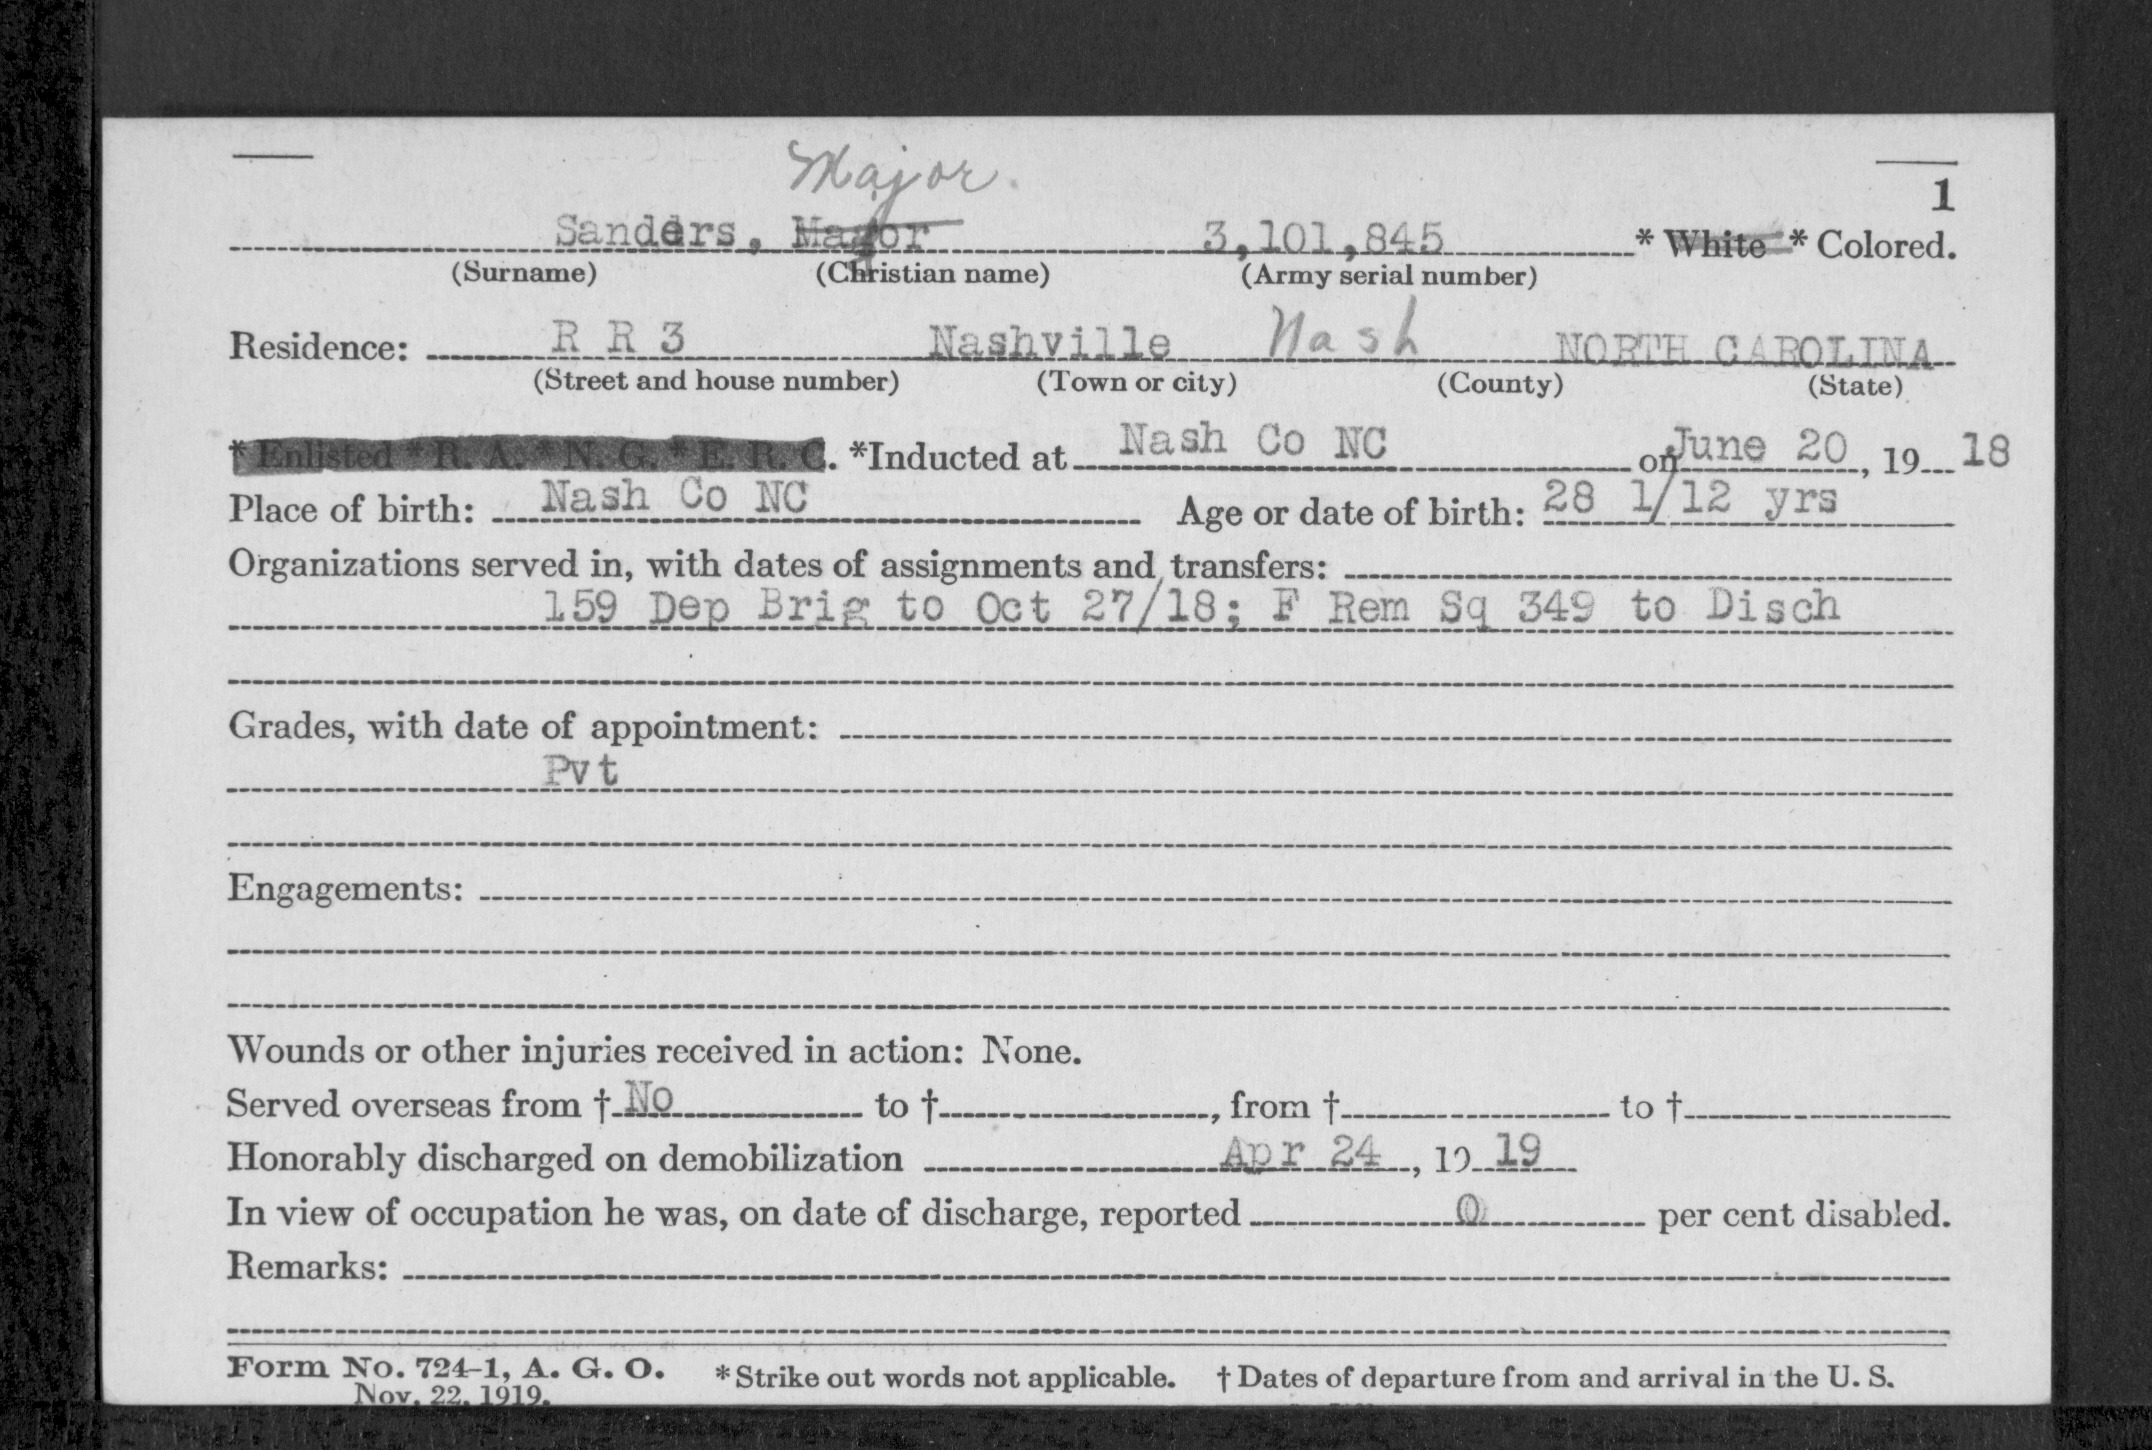 Major.
1
Sanders, Mayor 3,101,845 * White * Colored.
(Surname) (Christian name) (Army serial number)
Residence: R R 3 Nashville Nash NORTH CAROLINA
(Street and house number) (Town or city) (County) (State)
* Enlisted * R. A. * N. G. * E. R. C. *Inducted at Nash Co NC on June 20, 19 18
Place of birth: Nash Co NC Age or date of birth: 28 1/12 yrs
Organizations served in, with dates of assignments and transfers:
159 Dep Brig to Oct 27/18; F Rem Sq 349 to Disch
Grades, with date of appointment:
Pvt
Engagements:
Wounds or other injuries received in action: None.
Served overseas from † No to †, from † to †
Honorably discharged on demobilization Apr 24, 19 19
In view of occupation he was, on date of discharge, reported 0 per cent disabled.
Remarks:
Form No. 724-1, A. G. O. * Strike out words not applicable. † Dates of departure from and arrival in the U. S.
Nov. 22, 1919.